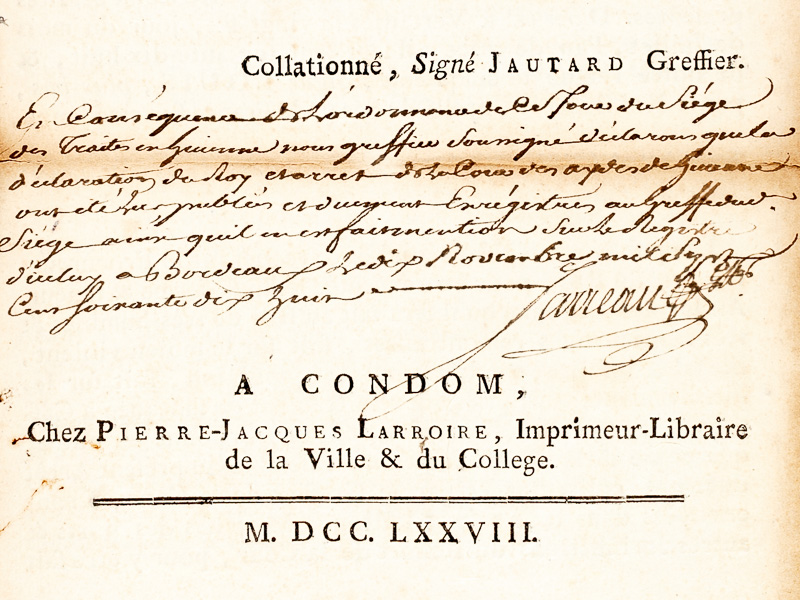 Collationné, Signé JAUTARD Greffier.
En Conséquence de L'ordonnance de Ce Jour du Siége
des Traites en Guienne nous greffier soussigné déclarons que la
déclaration du Roy et arret de la Cour des aydes de Guienne
ont été lus publiés et duement Enrégistrés au Greffe dud.
Siége ainsi quil en est fait mention sur le Registre
d'iceluy a Bordeaux Le dix Novembre mil Sept
Cens soixante dix huit
A CONDOM,
Chez PIERRE-JACQUES LARROIRE, Imprimeur-Libraire
de la Ville & du College.
M. DCC. LXXVIII.